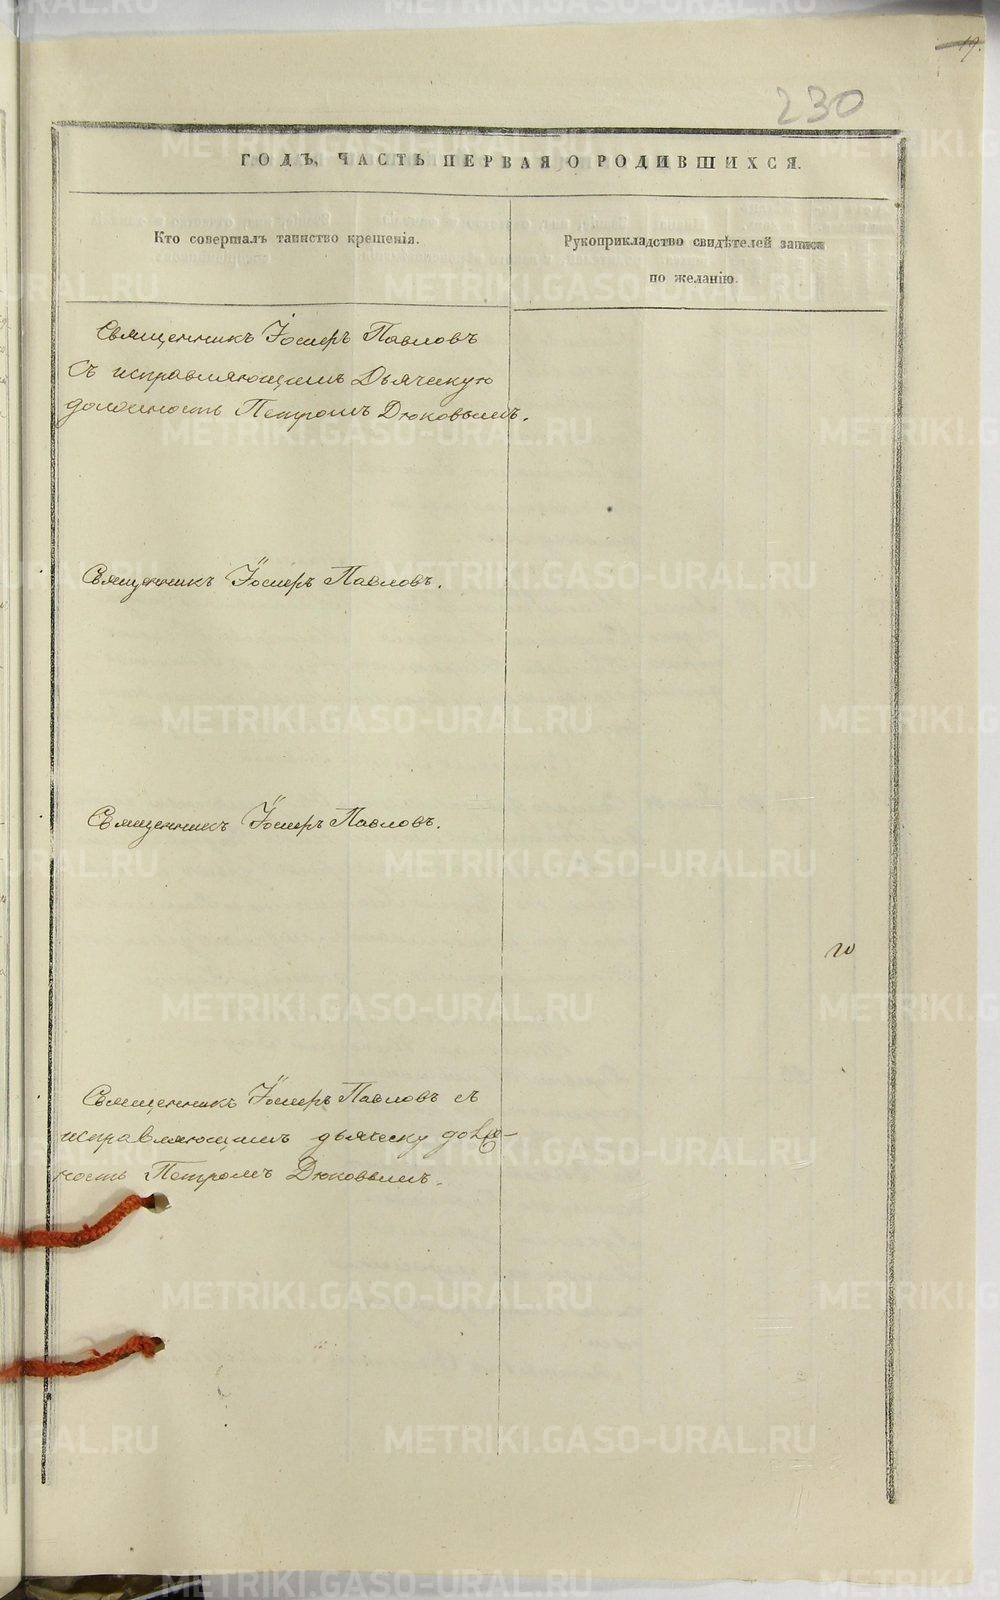 19.
230
ГОДЪ, ЧАСТЬ ПЕРВАЯ О РОДИВШИХСЯ.
Кто совершалъ таинство крещенія.
Рукоприкладство свидѣтелей записи
по желанію.
Священникъ Іосифъ Павловъ
Съ исправляющимъ Дьяческую
должность Петромъ Дюковымъ.
Священникъ Іосифъ Павловъ.
Священникъ Іосифъ Павловъ.
Священникъ Іосифъ Павловъ съ
исправляющимъ дьяческу долж-
ность Петромъ Дюковымъ.
METRIKI.GASO-URAL.RU